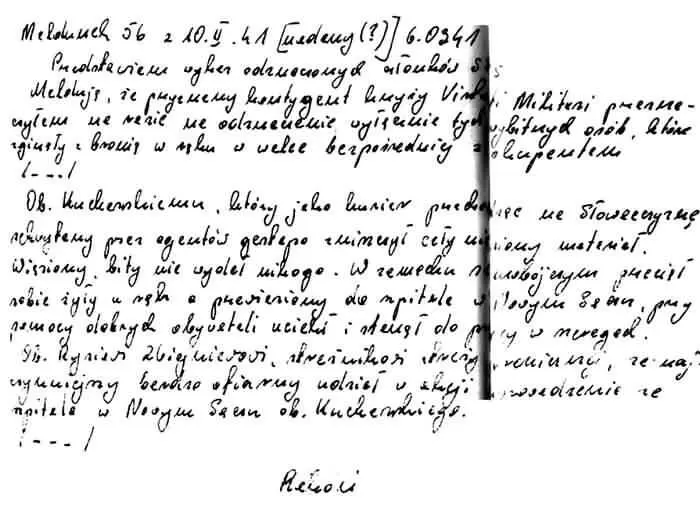 Meldunek 56 z 10.II.41 [nadany (?)] 6.0341
Przedstawiam wykaz odznaczonych członków
Melduję, że przyznany kontyngent krzyży Virtuti Militari przezna-
czyłem na razie na odznaczenie wyłącznie tych wybitnych osób, które
zginęły z bronią w ręku w walce bezpośredniej z okupantem
/---/
Ob. Kucherskiemu, który jako kurier przechodząc na Słowaczyznę
schwytany przez agentów gestapo zniszczył cały niesiony materiał.
Więziony, bity nie wydał nikogo. W zamachu samobójczym przeciął
sobie żyły u rąk a przewieziony do szpitala w Nowym Sączu, przy
pomocy dobrych obywateli uciekł i stanął do pracy w szeregach.
Ob. Rysiowi Zbigniewowi, strażnikowi straży granicznej, za naj-
czynniejszy bardzo ofiarny udział w akcji wyprowadzenia ze
szpitala w Nowym Sączu ob. Kucherskiego.
/---/
Rakoń